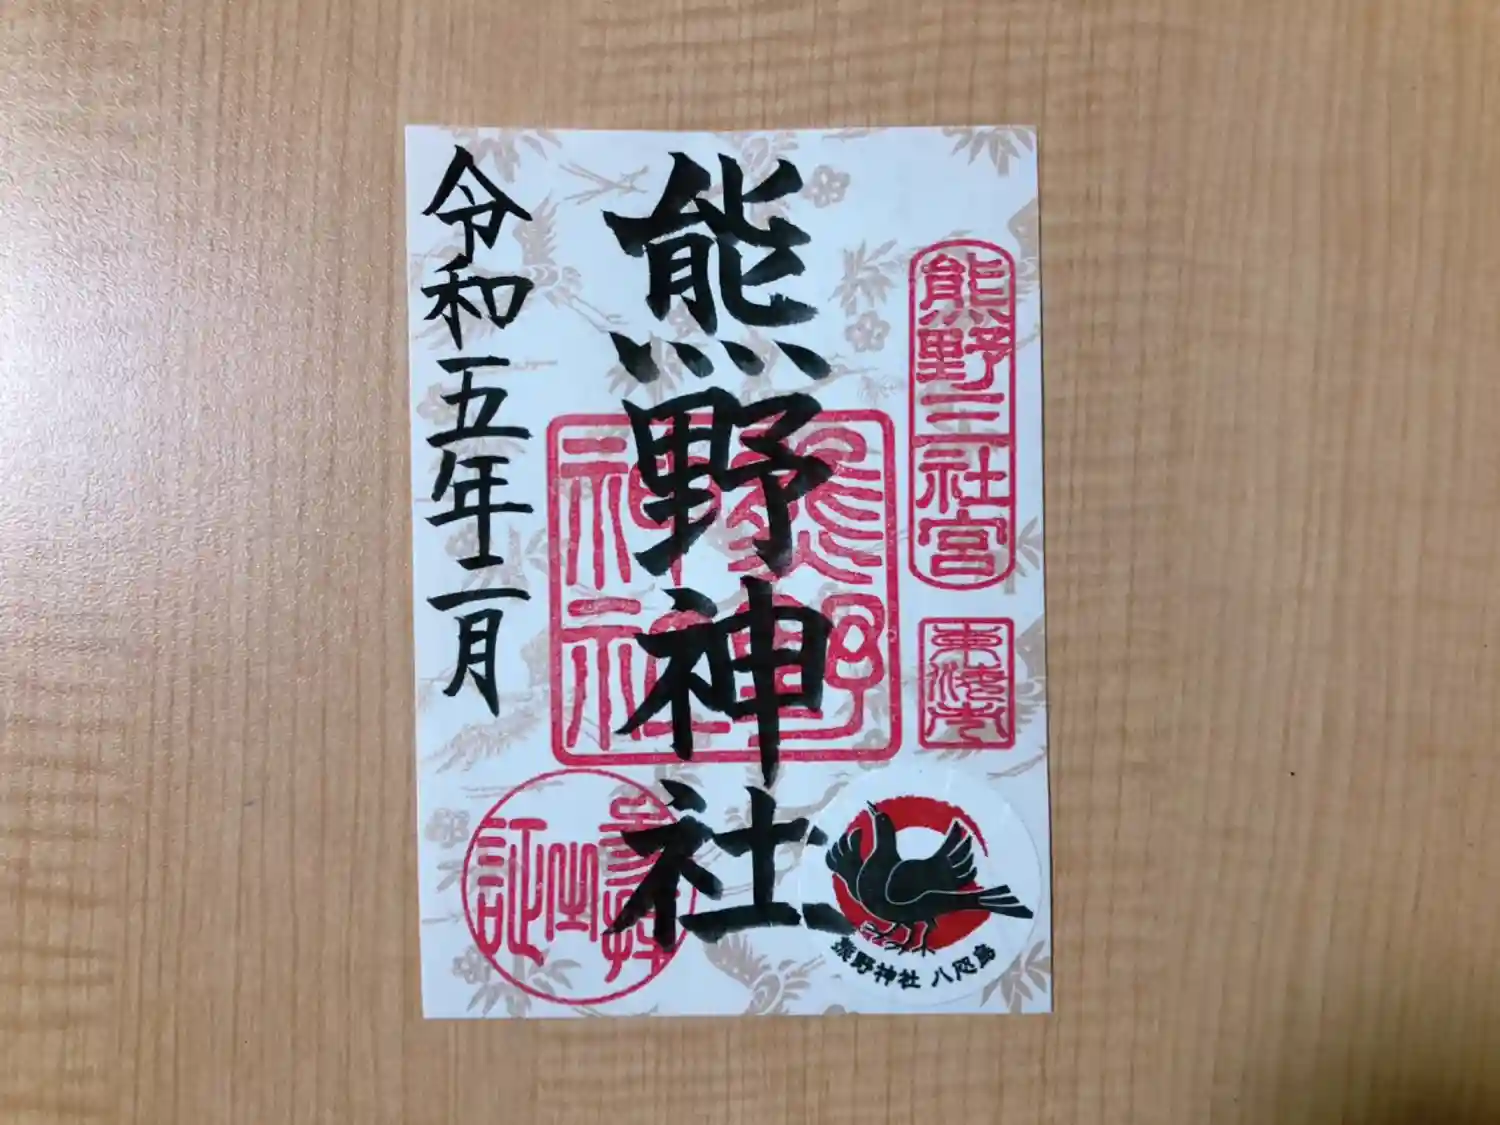 熊野三社宮
熊野神社
熊野
神社
令和五年二月
参拝
之
証
熊野神社 八咫烏